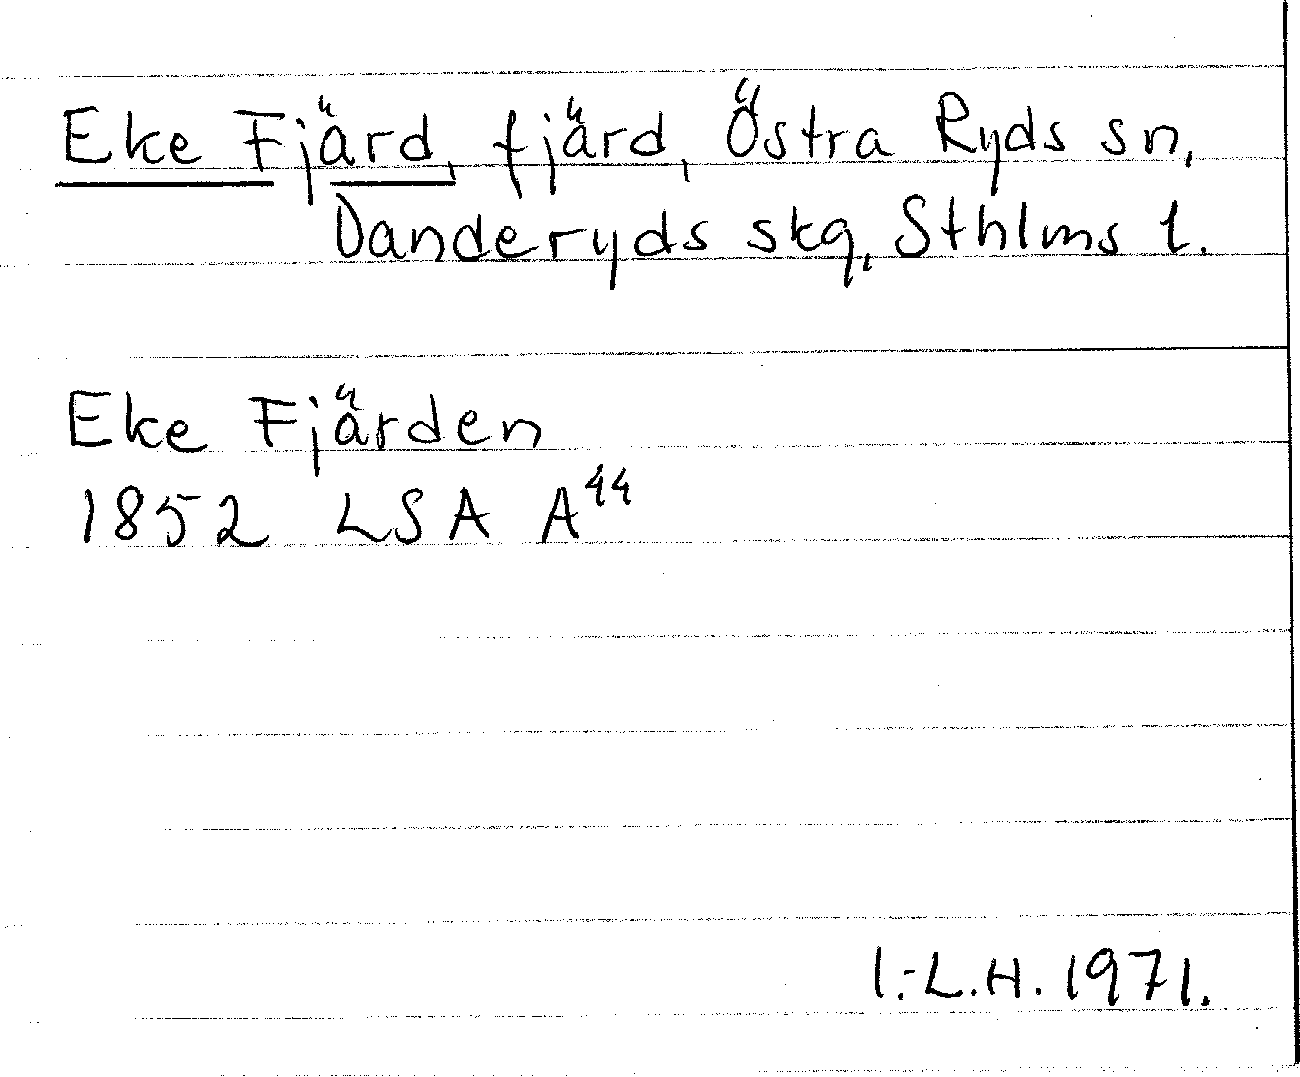 Eke Fjärd, fjärd, Östra Ryds sn,
Danderyds skg, Sthlms l.
Eke Fjärden
1852 LSA A44
I.-L.H. 1971.